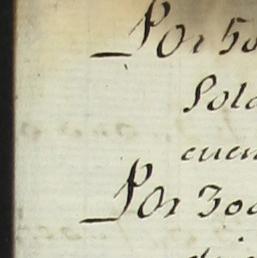 Por 50
Sold
cuen
Por 300